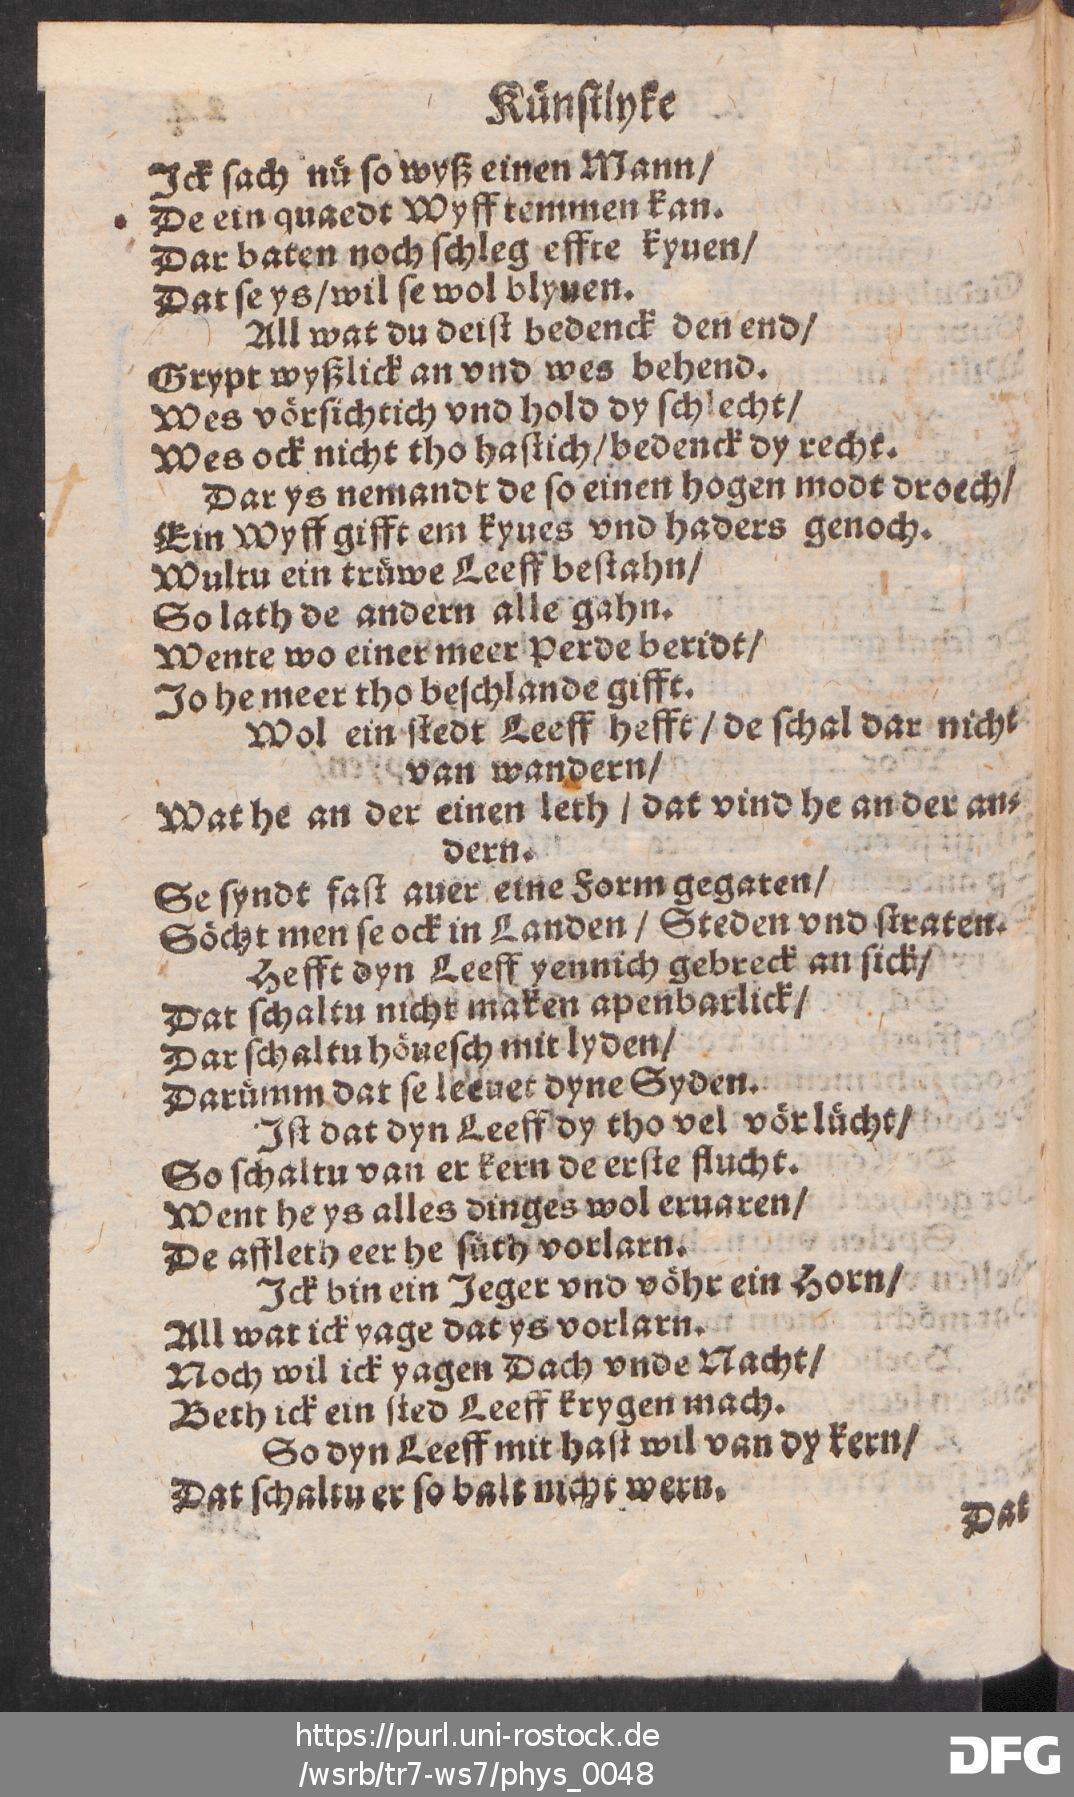 Künstlyke
Ick sach nü so wyß einen Mann/
De ein quaedt Wyff temmen kan.
Dar baten noch schleg effte kyuen/
Dat se ys/wil se wol blyuen.
All wat du deist bedenck den end/
Grypt wyßlick an vnd wes behend.
Wes vörsichtich vnd hold dy schlecht/
Wes ock nicht tho hastich/bedenck dy recht.
Dar ys nemandt de so einen hogen modt droech/
Ein Wyff gifft em kyues vnd haders genoch.
Wultu ein trüwe Leeff bestahn/
So lath de andern alle gahn.
Wente wo einer meer Perde beridt/
Jo he meer tho beschlande gifft.
Wol ein stedt Leeff hefft / de schal dar nicht
van wandern/
Wat he an der einen leth / dat vind he an der an⸗
dern.
Se syndt fast auer eine Form gegaten/
Söcht men se ock in Landen / Steden vnd straten.
Hefft dyn Leeff yennich gebreck an sick/
Dat schaltu nicht maken apenbarlick/
Dar schaltu höuesch mit lyden/
Darümm dat se leeuet dyne Syden.
Ist dat dyn Leeff dy tho vel vör lücht/
So schaltu van er kern de erste flucht.
Went he ys alles dinges wol eruaren/
De affleth eer he süth vorlarn.
Ick bin ein Jeger vnd vöhr ein Horn/
All wat ick yage dat ys vorlarn.
Noch wil ick yagen Dach vnde Nacht/
Beth ick ein sted Leeff krygen mach.
So dyn Leeff mit hast wil van dy kern/
Dat schaltu er so balt nicht wern.
Dat
https://purl.uni-rostock.de
/wsrb/tr7-ws7/phys_0048
DFG